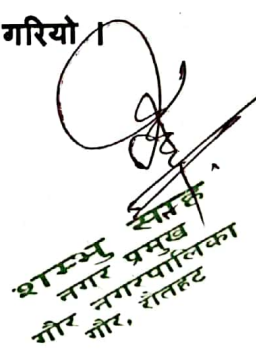 गरियो ।
शम्भु साह
नगर प्रमुख
गौर नगरपालिका
गौर, रौतहट